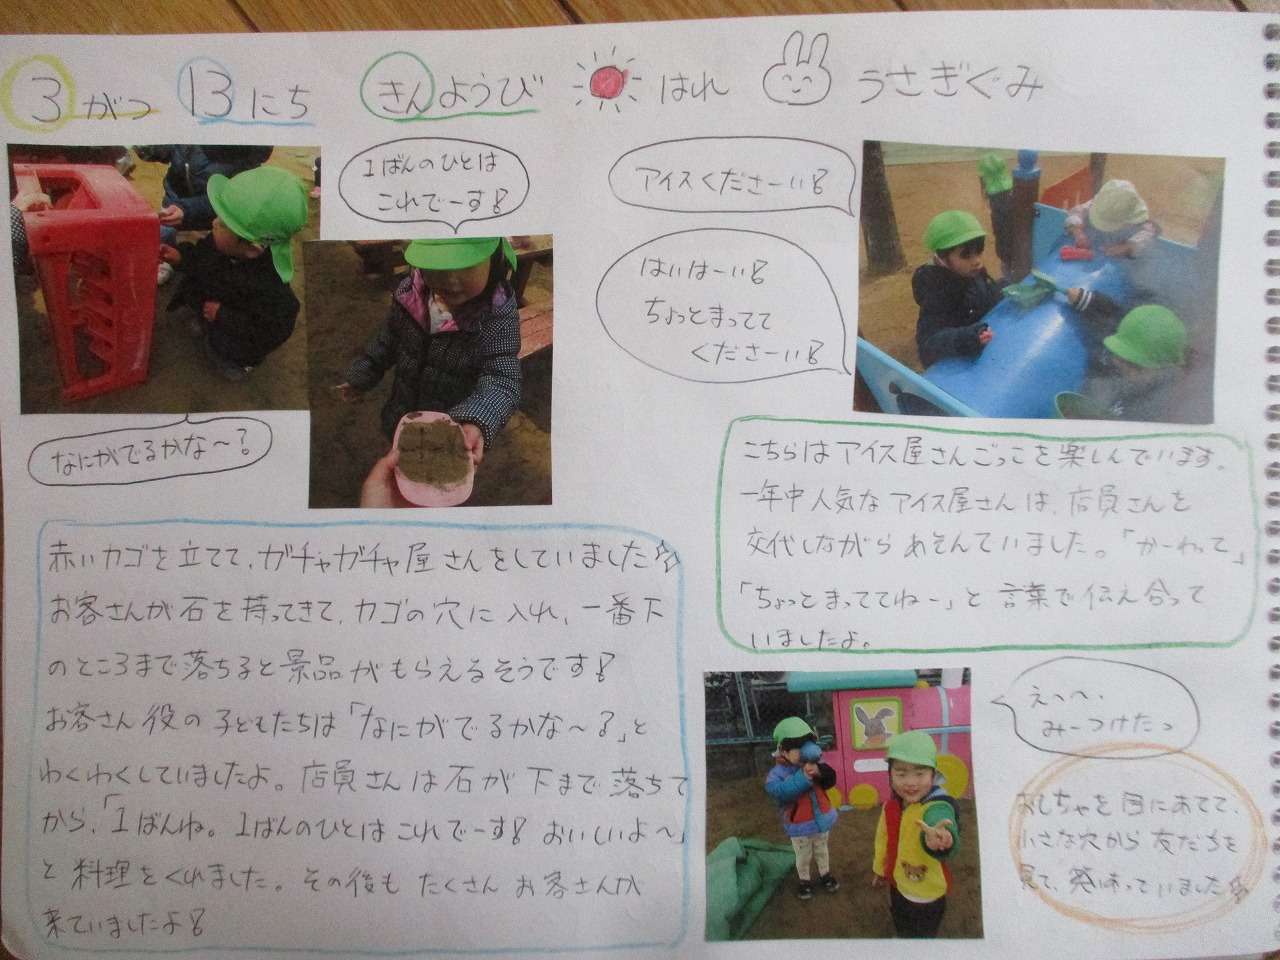 3がつ 13にち きんようび はれ うさぎぐみ
1ばんのひとは
これでーす!
なにがでるかな〜?
アイスくださーい!
はいはーい!
ちょっとまってて
くださーい!
赤いカゴを立てて、ガチャガチャ屋さんをしていました☆
お客さんが石を持ってきて、カゴの穴に入れ、一番下
のところまで落ちると景品がもらえるそうです!
お客さん役の子どもたちは「なにがでるかな〜?」と
わくわくしていましたよ。店員さんは石が下まで落ちて
から、「1ばんね。1ばんのひとはこれでーす!おいしいよ〜」
と料理をくれました。その後もたくさんお客さんが
来ていましたよ!
こちらはアイス屋さんごっこを楽しんでいます。
一年中人気なアイス屋さんは、店員さんを
交代しながらあそんでいました。「かーわって」
「ちょっとまっててねー」と言葉で伝え合って
いましたよ。
えへへ、
みーつけたっ
おもちゃを目にあてて、
小さな穴から友だちを
見て、笑い合っていました☆